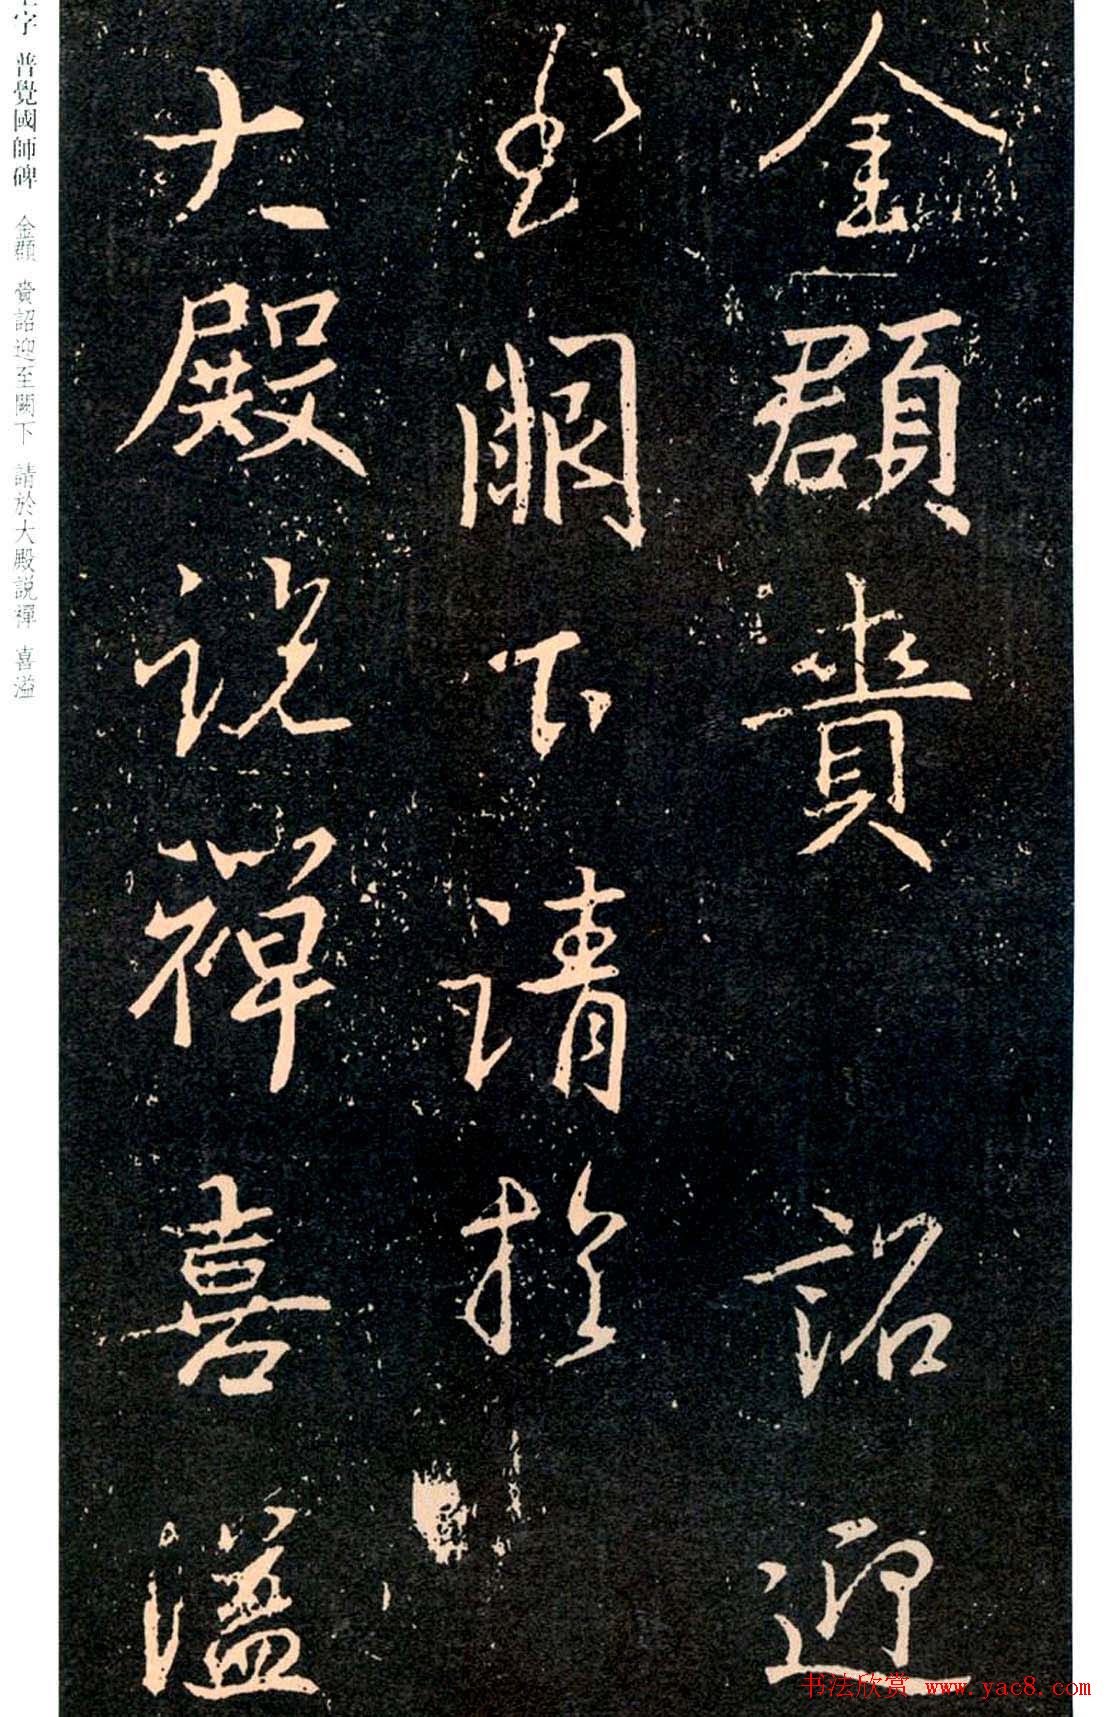 金頵賫詔迎
至闕下請於
大殿説禪喜溢
字 普覺國師碑 金頵 賫詔迎至闕下 請於大殿説禪 喜溢
书法欣赏 www.yac8.com